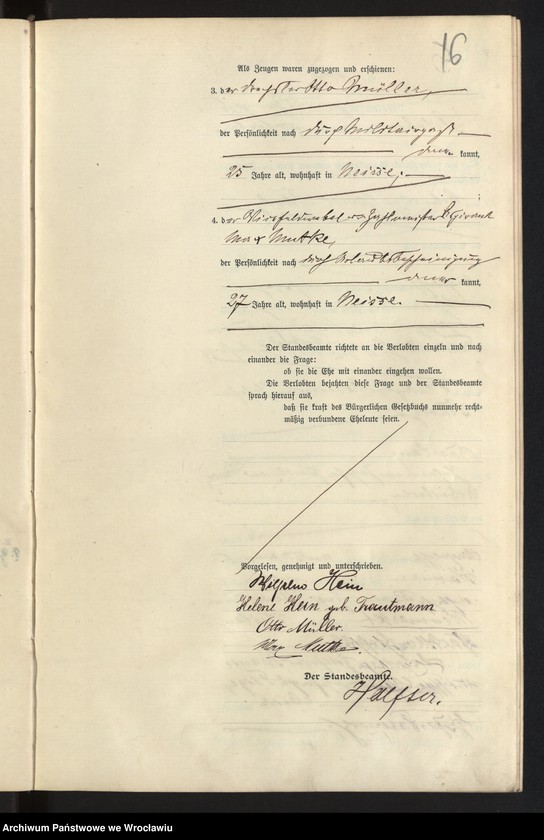 16
Als Zeugen waren zugezogen und erschienen:
3. der Otto Müller,
der Persönlichkeit nach durch Militärpaß
kannt,
25 Jahre alt, wohnhaft in Neisse;
4. der Vizefeldwebel
Max Mutke,
der Persönlichkeit nach durch
kannt,
27 Jahre alt, wohnhaft in Neisse.
Der Standesbeamte richtete an die Verlobten einzeln und nach
einander die Frage:
ob sie die Ehe mit einander eingehen wollen.
Die Verlobten bejahten diese Frage und der Standesbeamte
sprach hierauf aus,
daß sie kraft des Bürgerlichen Gesetzbuchs nunmehr recht-
mäßig verbundene Eheleute seien.
Vorgelesen, genehmigt und unterschrieben.
Wilhelm Hein
Helene Hein geb. Trautmann
Otto Müller.
Max Mutke.
Der Standesbeamte.
Archiwum Państwowe we Wrocławiu